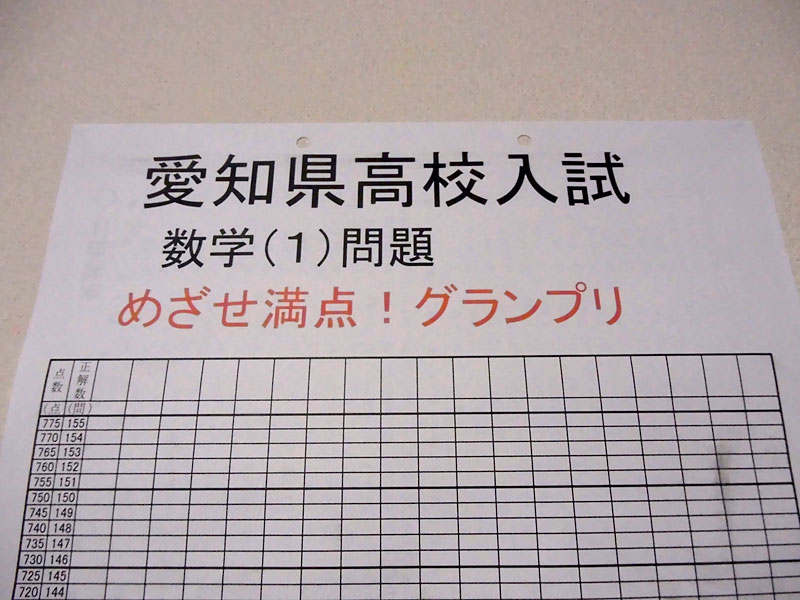 愛知県高校入試
数学(1)問題
めざせ満点！グランプリ
点数 正解数
(点) (問)
775 155
770 154
765 153
760 152
755 151
750 150
745 149
740 148
735 147
730 146
725 145
720 144